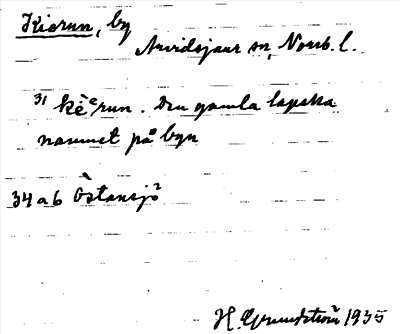 Kierun, by
Arvidsjaur sn, Norrb. l.
31 kēᵉrun. Den gamla lapska
namnet på byn
34 a b Östansjö
H. Grundström 1935